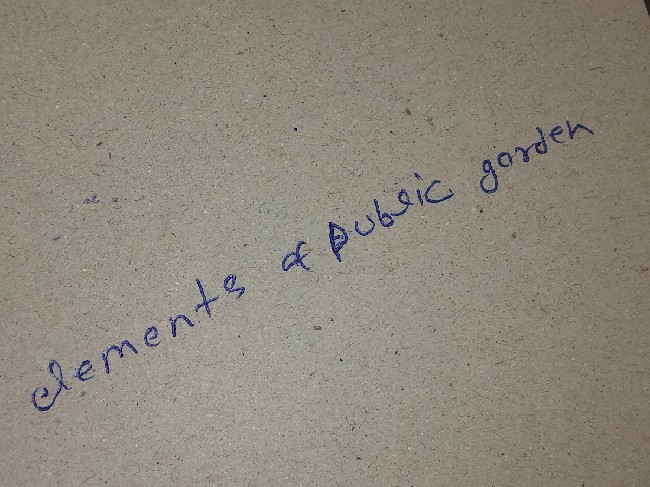 elements of public garden